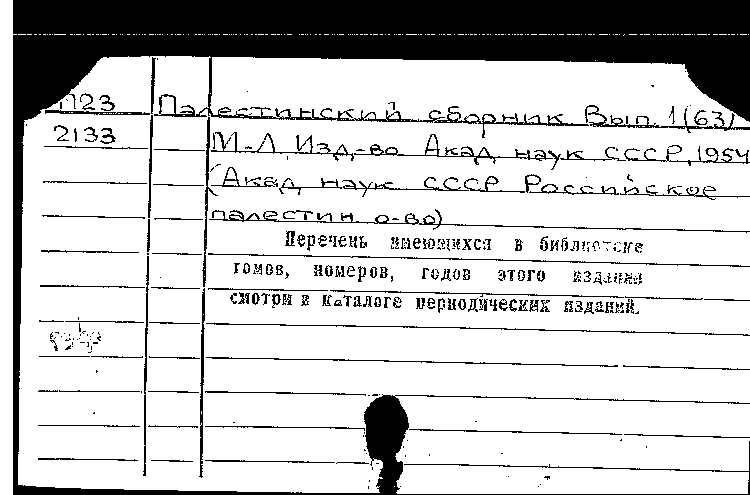 П23 Палестинский сборник Вып. 1(63)
2133 М.-Л., Изд-во Акад. наук СССР, 1954
(Акад. наук СССР Российское
палестин. о-во)
Перечень имеющихся в библиотеке
томов, номеров, годов этого издания
смотри в каталоге периодических изданий.